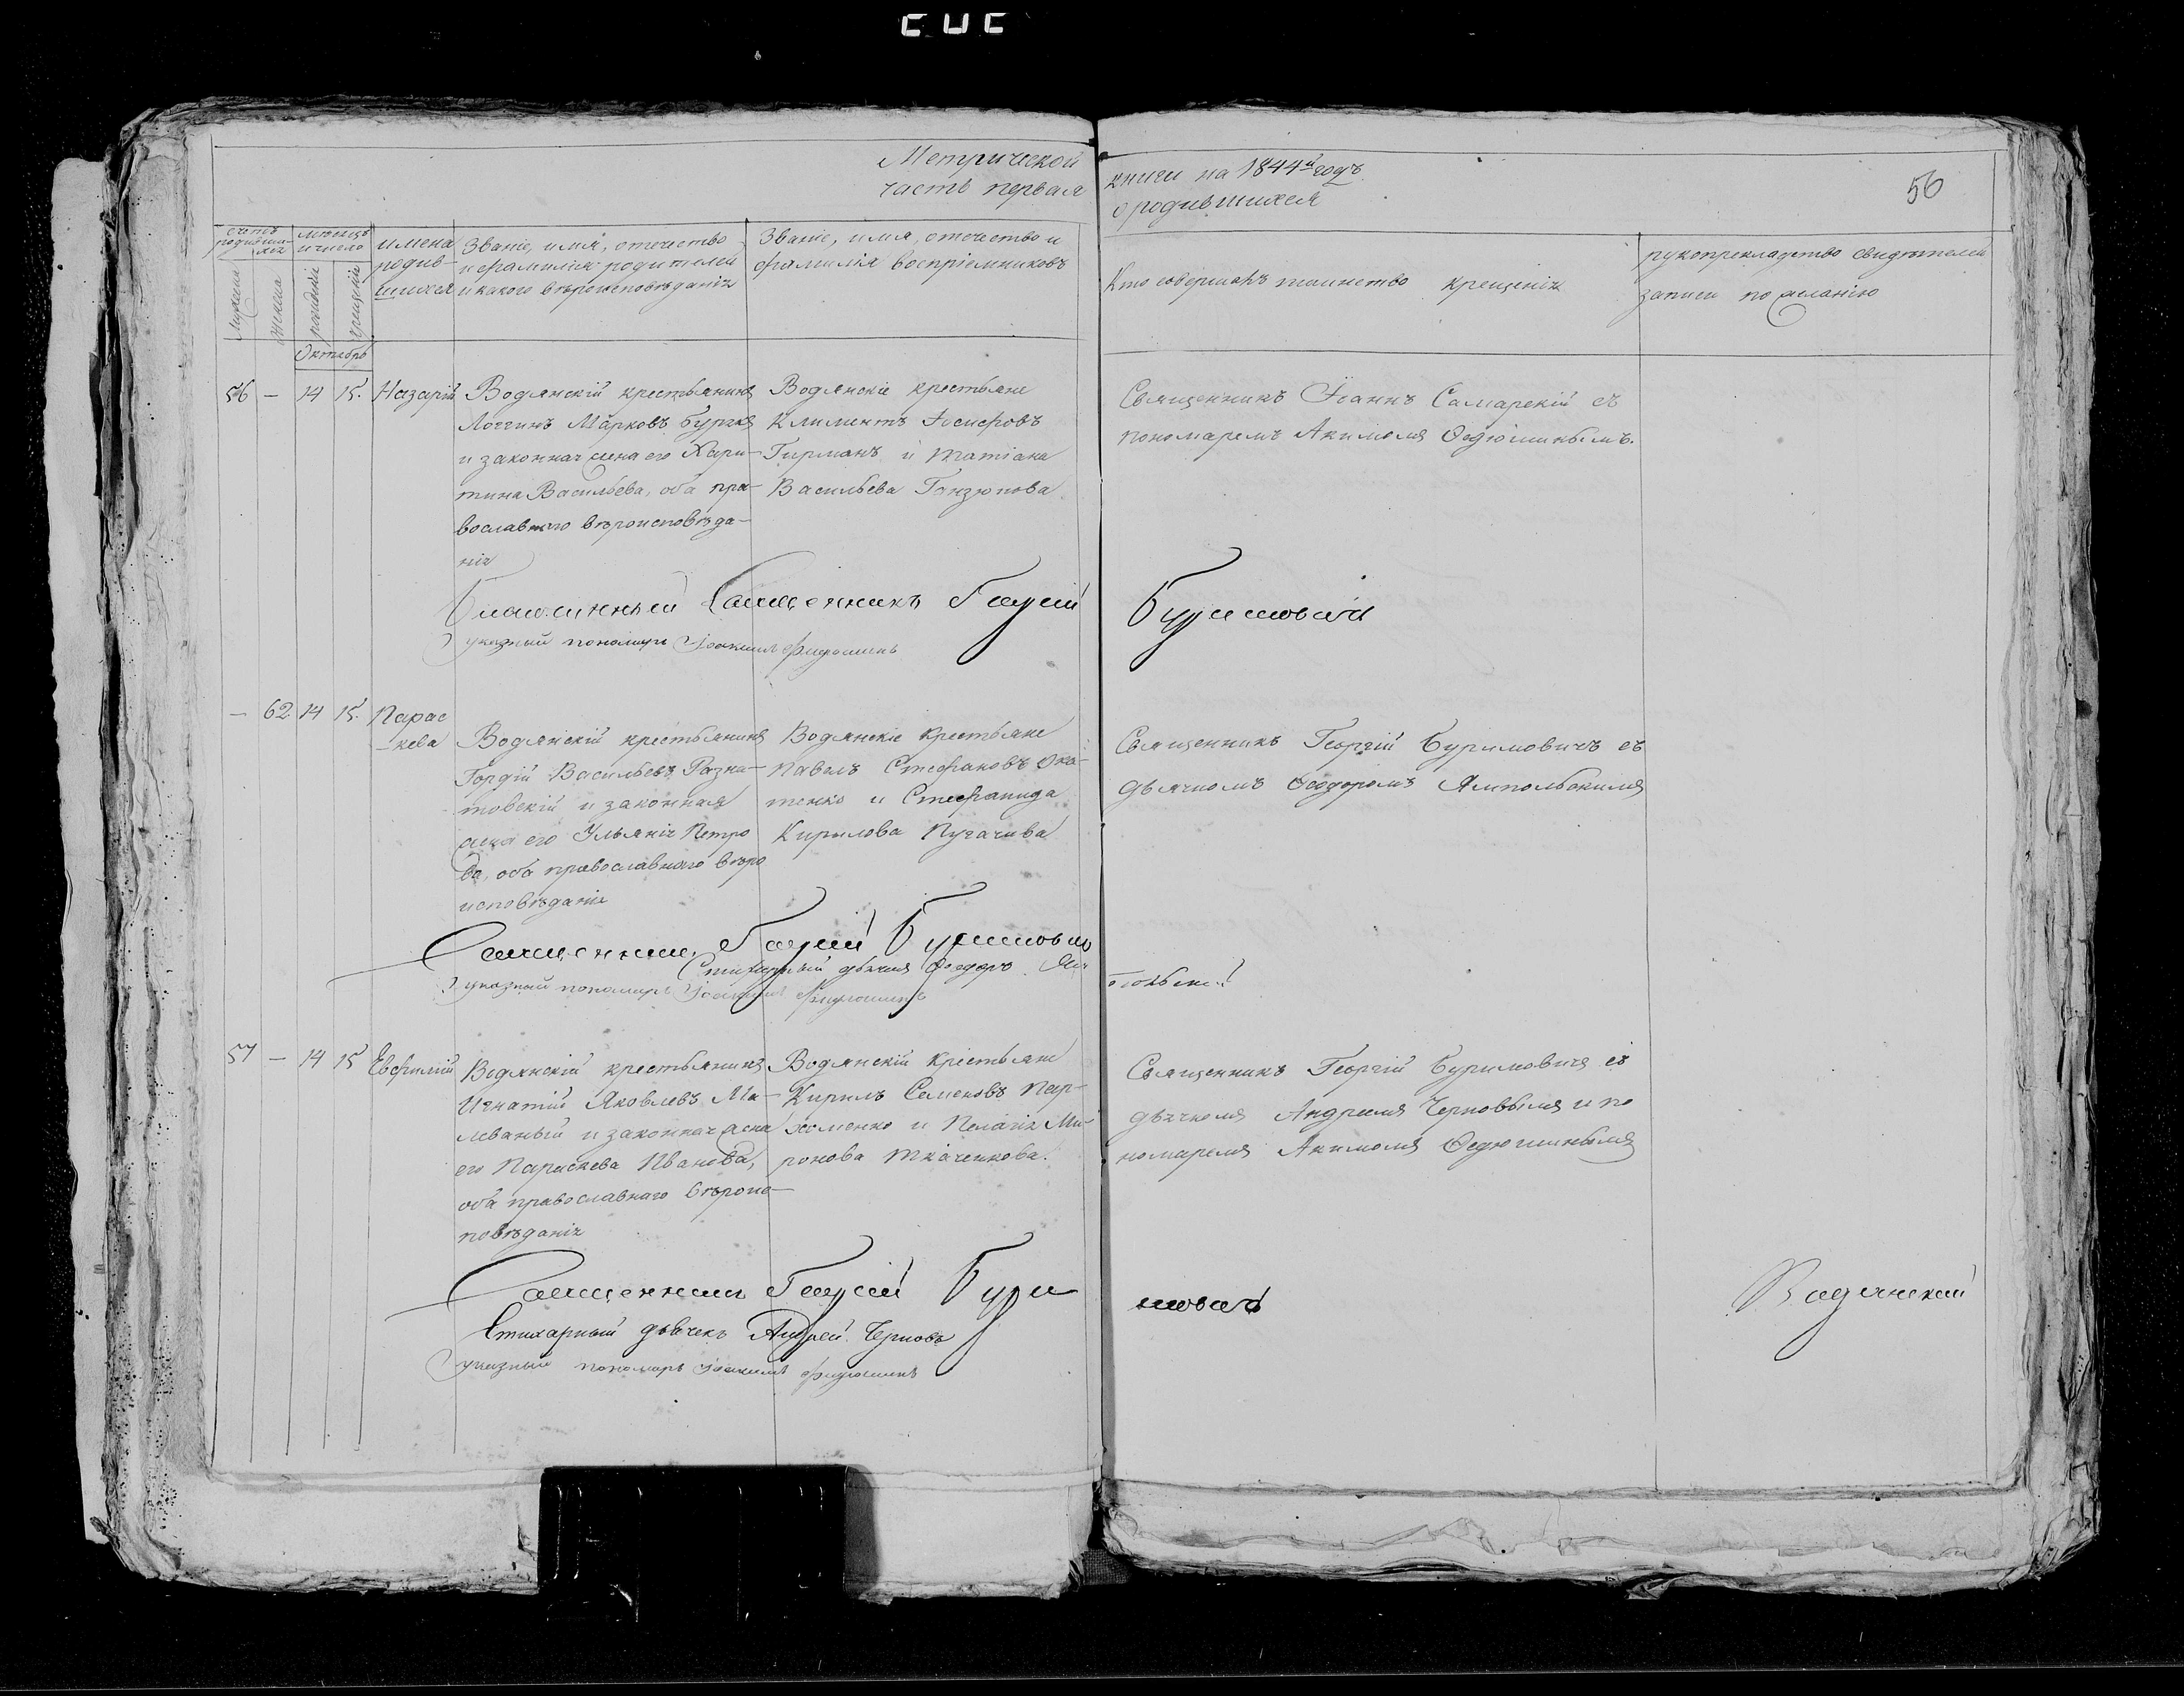 Метрической книги на 1844й годъ
часть первая о родившихся
56
счетъ родившихся
мужска
женска
мѣсяцъ и число
рожденія
крещенія
имена родившихся
Званіе, имя, отечество
и фамилія родителей
и какого вѣроисповѣданія
Званіе, имя, отечество и
фамилія воспріемниковъ
Кто совершалъ таинство крещенія
рукоприкладство свидѣтелей
записи по желанію
Октябрь
56 — 14 15. Назарій
Водянскій крестьянинъ
Логгинъ Марковъ
и законная жена его Хари-
тина Васильева, оба пра-
вославнаго вѣроисповѣда-
нія
Водянскіе крестьяне
Климентъ Іосифовъ
Гирманъ и Татіана
Васильева
Священникъ Іоаннъ Самарскій съ
пономаремъ Акимомъ Ѳедюшинымъ.
Священникъ Георгій Буримовичъ
указный пономарь Іоакимъ Федюшинъ
— 62 14 15. Парас
-кева
Водянскій крестьянинъ
Гордій Васильевъ Разна-
товскій и законная
жена его Ульянія Петро
ва, оба православнаго вѣро
исповѣданія
Водянскіе крестьяне
Павелъ Стефановъ Ока-
тенко и Стефанида
Кирилова Пугачива
Священникъ Георгій Буримовичъ съ
дьячкомъ Ѳеодоромъ Ямпольскимъ
Священникъ Георгій Буримовичъ
Стихарный дьячекъ Ѳеодоръ Ямпольскій
указный пономарь Іоакимъ Федюшинъ
57 — 14 15 Евфимій
Водянскій крестьянинъ
Игнатій Яковлевъ Ма-
леваный и законная жена
его Параскева Иванова,
оба православнаго вѣроис-
повѣданія
Водянскій крестьяне
Кирилъ Семеновъ Пар-
хоменко и Пелагія Ми-
ронова Ткаченкова.
Священникъ Георгій Буримовичъ съ
дьячкомъ Андреемъ Черновымъ и по
номаремъ Акимомъ Ѳедюшинымъ
Священникъ Георгій Буримовичъ
Стихарный дьячекъ Андрей Черновъ
указный пономарь Іоакимъ Федюшинъ
Водянскій